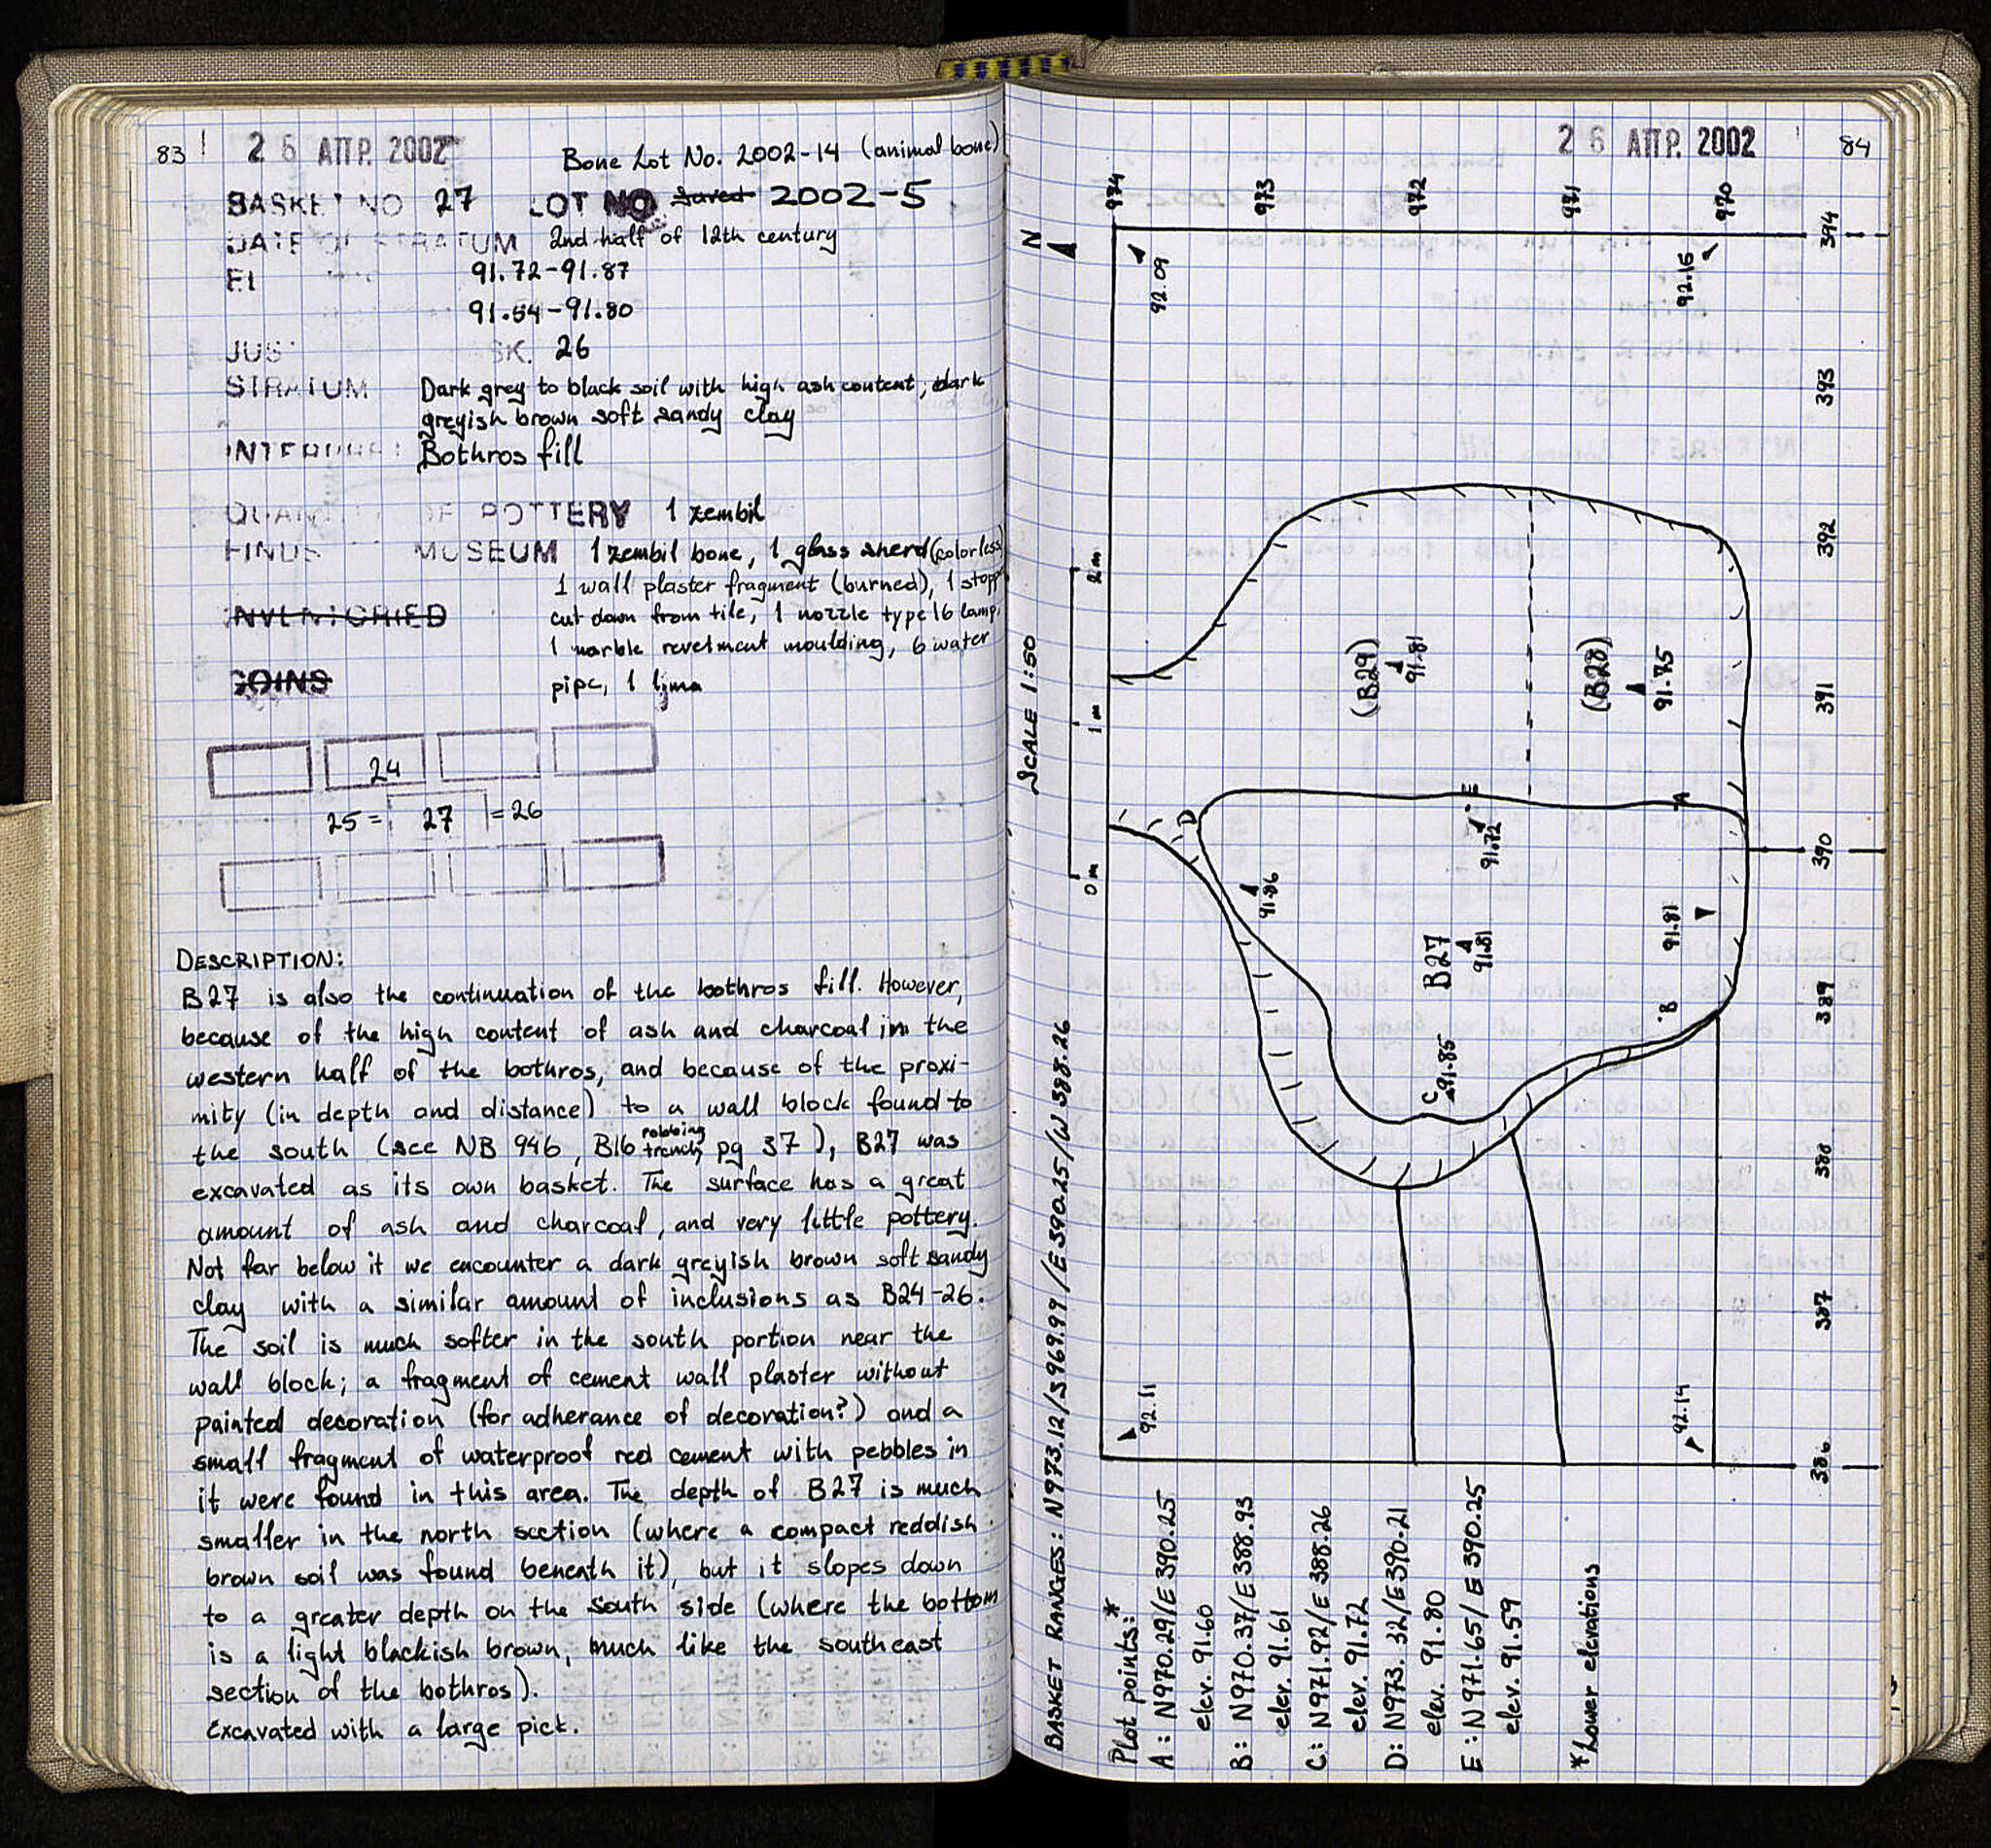 83
26 ΑΠΡ. 2002
Bone Lot No. 2002-14 (animal bone)
BASKET NO 27 LOT NO. Saved 2002-5
DATE OF STRATUM 2nd half of 12th century
El 91.72-91.87
91.54-91.80
JUS SK. 26
STRATUM Dark grey to black soil with high ash content; dark
greyish brown soft sandy clay
INTERPRET Bothros fill
QUANTITY OF POTTERY 1 zembil
FINDS MUSEUM 1 zembil bone, 1 glass sherd (colorless)
1 wall plaster fragment (burned), 1 stopp
INVENTORIED cut down from tile, 1 nozzle type 16 lamp,
1 marble revetment moulding, 6 water
COINS pipe, 1 lima
24
25 = 27 = 26
DESCRIPTION:
B27 is also the continuation of the bothros fill. However,
because of the high content of ash and charcoal in the
western half of the bothros, and because of the proxi-
mity (in depth and distance) to a wall block found to
the south (see NB 946, B16 robbing trench, pg 37), B27 was
excavated as its own basket. The surface has a great
amount of ash and charcoal, and very little pottery.
Not far below it we encounter a dark greyish brown soft sandy
clay with a similar amount of inclusions as B24-26.
The soil is much softer in the south portion near the
wall block; a fragment of cement wall plaster without
painted decoration (for adherance of decoration?) and a
small fragment of waterproof red cement with pebbles in
it were found in this area. The depth of B27 is much
smaller in the north section (where a compact reddish
brown soil was found beneath it), but it slopes down
to a greater depth on the south side (where the bottom
is a light blackish brown, much like the southeast
section of the bothros).
Excavated with a large pick.
26 ΑΠΡ. 2002
84
BASKET RANGES: N973.12/S969.99/E390.25/W388.26
SCALE 1:50
0m 1m 2m
N
974
973
972
971
970
394
393
392
391
390
389
388
387
386
92.09
92.16
92.11
92.14
(B29)
91.81
(B28)
91.75
D
E
91.72
A
91.86
B27
91.81
91.81
B
C
91.85
Plot points:*
A: N970.29/E390.25
elev. 91.60
B: N970.37/E388.93
elev. 91.61
C: N971.92/E388.26
elev. 91.72
D: N973.32/E390.21
elev. 91.80
E: N971.65/E390.25
elev. 91.59
*Lower elevations